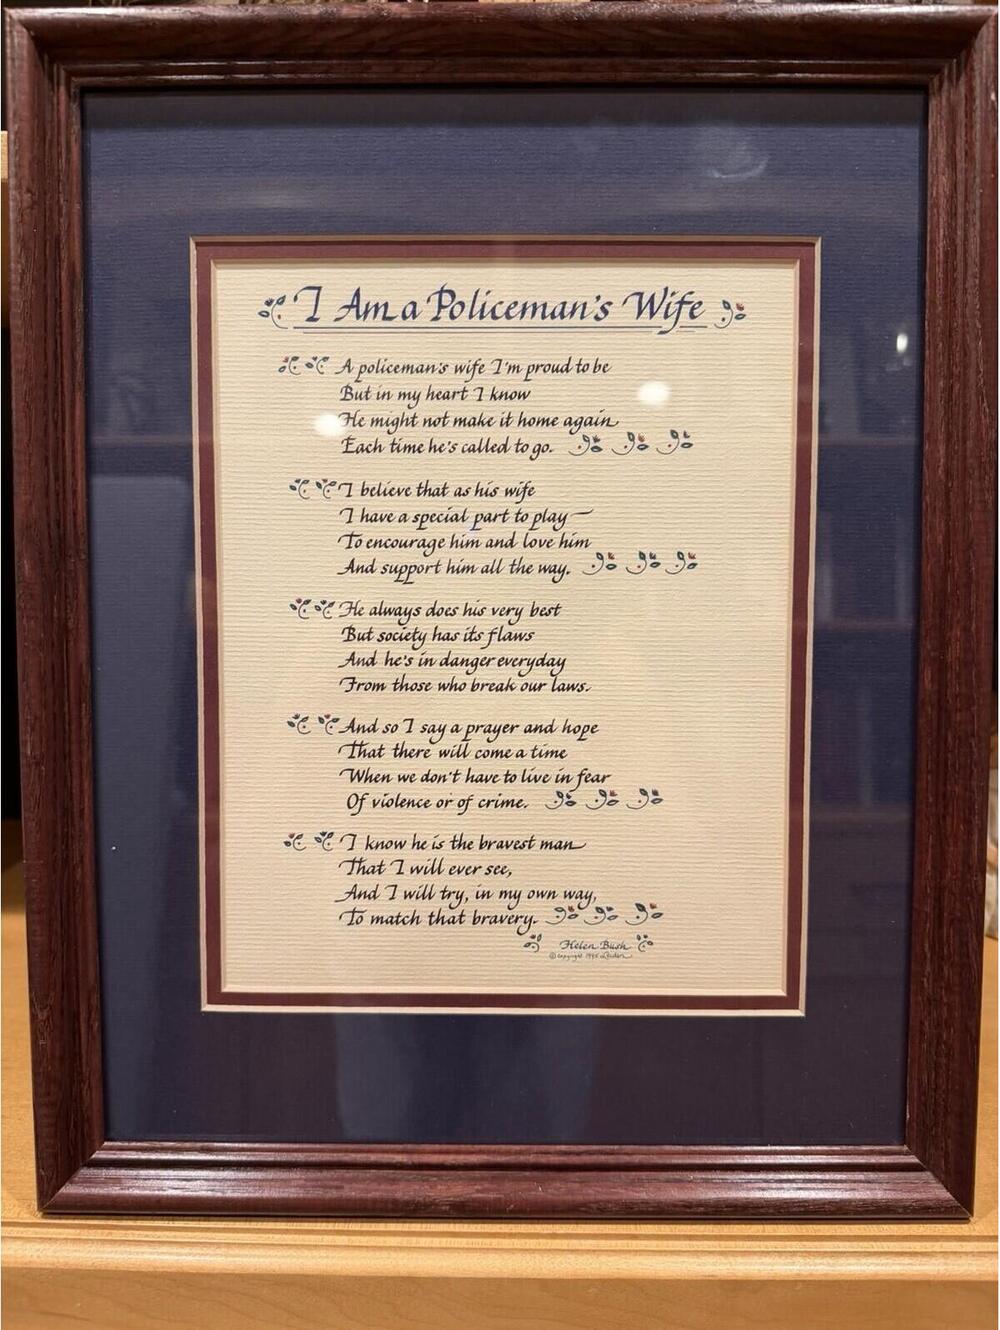 I Am a Policeman's Wife
A policeman's wife I'm proud to be
But in my heart I know
He might not make it home again
Each time he's called to go.
I believe that as his wife
I have a special part to play—
To encourage him and love him
And support him all the way.
He always does his very best
But society has its flaws
And he's in danger everyday
From those who break our laws.
And so I say a prayer and hope
That there will come a time
When we don't have to live in fear
Of violence or of crime.
I know he is the bravest man
That I will ever see,
And I will try, in my own way,
To match that bravery.
Helen Bush
© Copyright 1995